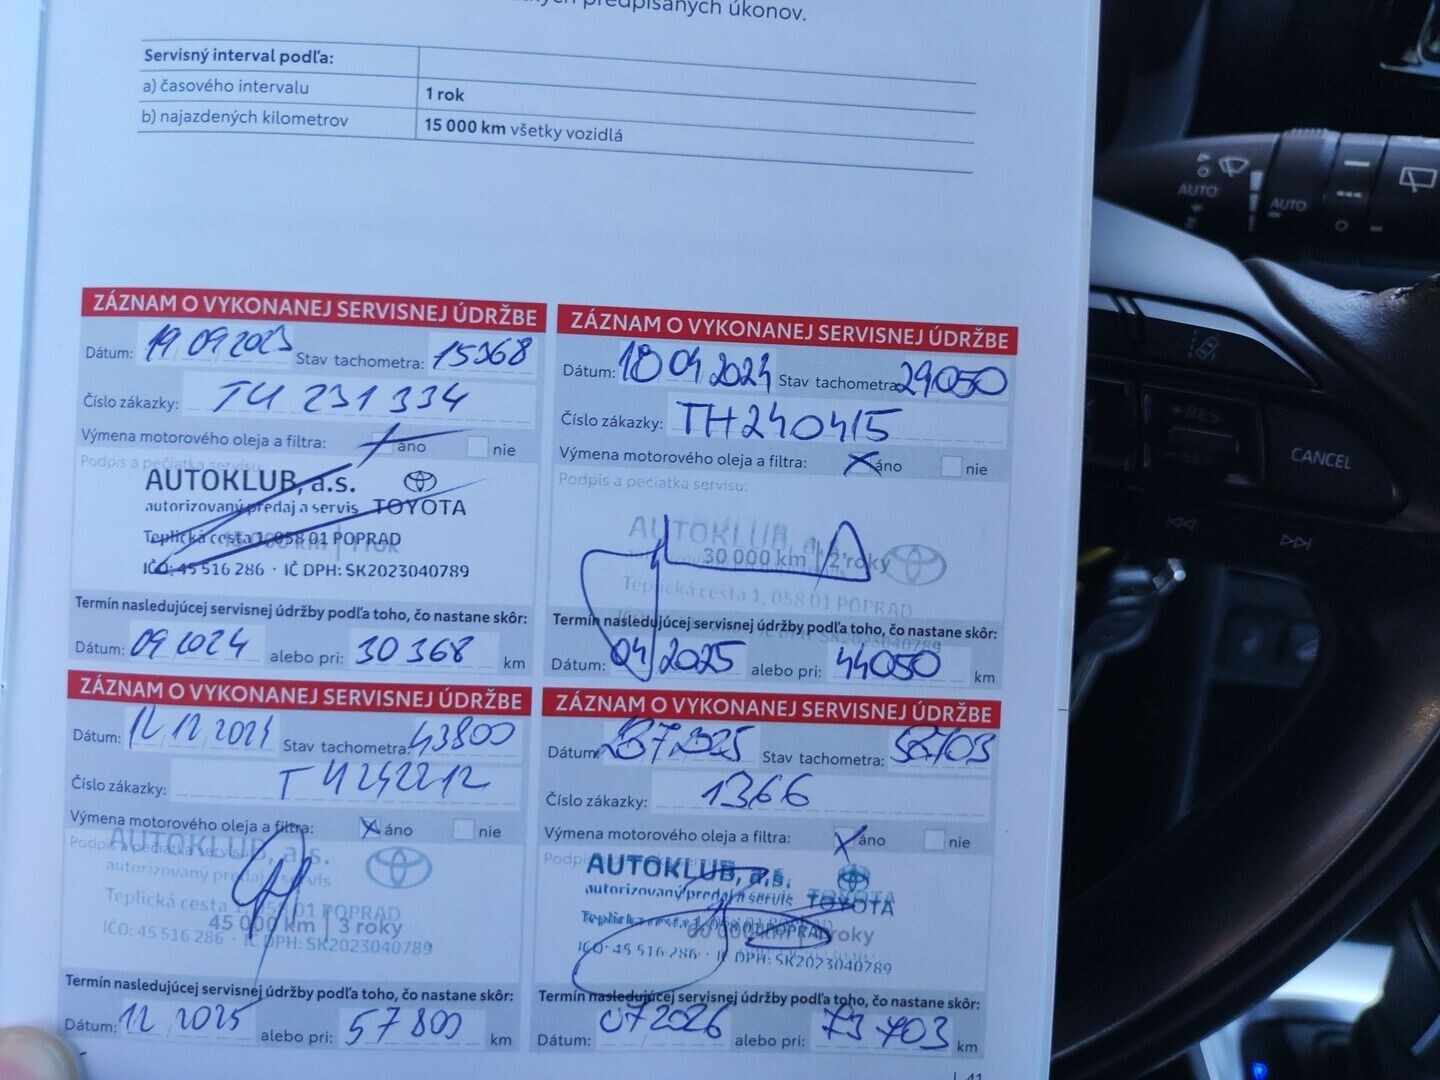 predpísaných úkonov.
Servisný interval podľa:
a) časového intervalu 1 rok
b) najazdených kilometrov 15 000 km všetky vozidlá
ZÁZNAM O VYKONANEJ SERVISNEJ ÚDRŽBE
Dátum: 19 09 2023 Stav tachometra: 15368
Číslo zákazky: TH 231 334
Výmena motorového oleja a filtra: áno nie
Podpis a pečiatka servisu:
AUTOKLUB, a.s.
autorizovaný predaj a servis TOYOTA
Teplická cesta 1, 058 01 POPRAD
15 000 km | 1 rok
IČO: 45 516 286 · IČ DPH: SK2023040789
Termín nasledujúcej servisnej údržby podľa toho, čo nastane skôr:
Dátum: 09 2024 alebo pri: 30 368 km
ZÁZNAM O VYKONANEJ SERVISNEJ ÚDRŽBE
Dátum: 18 04 2024 Stav tachometra: 29050
Číslo zákazky: TH240415
Výmena motorového oleja a filtra: áno nie
Podpis a pečiatka servisu:
AUTOKLUB, a.s.
30 000 km | 2 roky
Teplická cesta 1, 058 01 POPRAD
Termín nasledujúcej servisnej údržby podľa toho, čo nastane skôr:
Dátum: 04 2025 alebo pri: 44050 km
ZÁZNAM O VYKONANEJ SERVISNEJ ÚDRŽBE
Dátum: 12 12 2024 Stav tachometra: 43800
Číslo zákazky: TH242212
Výmena motorového oleja a filtra: áno nie
Podpis a pečiatka servisu:
AUTOKLUB, a.s.
autorizovaný predaj a servis
Teplická cesta 1, 058 01 POPRAD
45 000 km | 3 roky
IČO: 45 516 286 · IČ DPH: SK2023040789
Termín nasledujúcej servisnej údržby podľa toho, čo nastane skôr:
Dátum: 12 2025 alebo pri: 57 800 km
ZÁZNAM O VYKONANEJ SERVISNEJ ÚDRŽBE
Dátum: 7 2025 Stav tachometra:
Číslo zákazky: 1366
Výmena motorového oleja a filtra: áno nie
AUTOKLUB, a.s.
autorizovaný predaj a servis TOYOTA
Teplická cesta 1, 058 01 POPRAD
60 000 km roky
IČO: 45 516 286 · IČ DPH: SK2023040789
Termín nasledujúcej servisnej údržby podľa toho, čo nastane skôr:
Dátum: 07 2026 alebo pri: 73 703 km
| 41
AUTO
AUTO
+RES
CANCEL